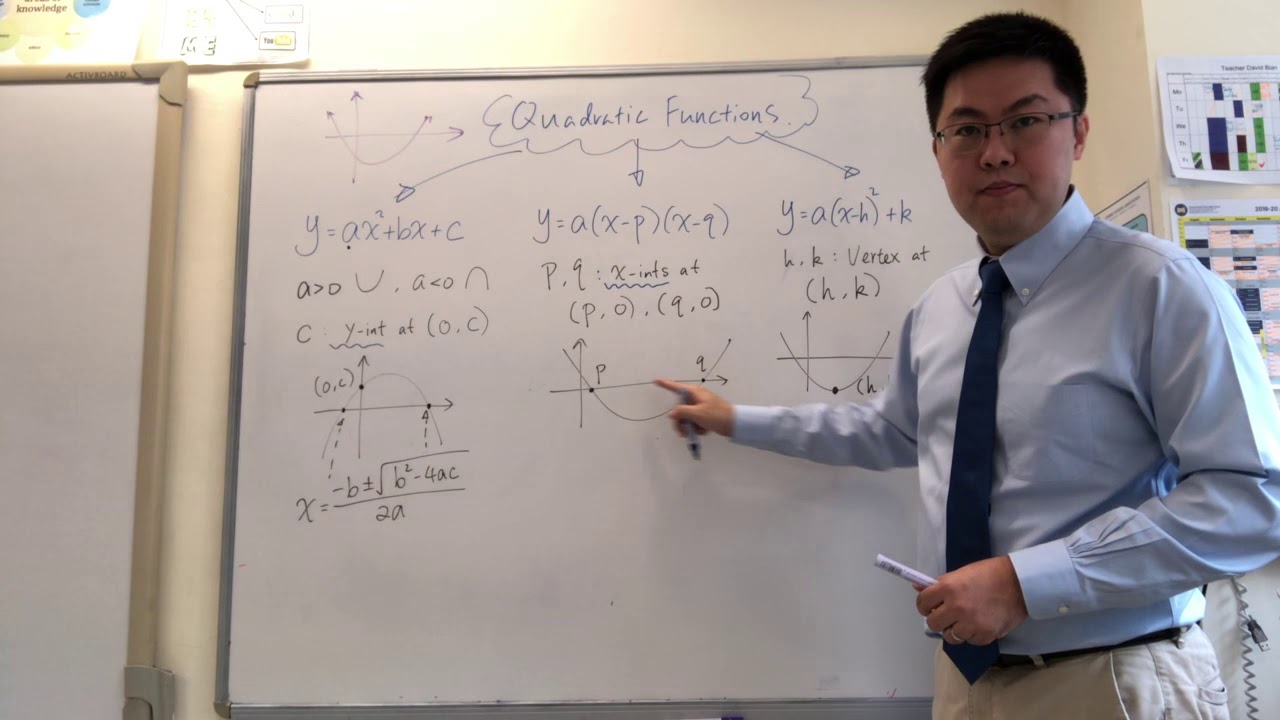 knowledge
ME
You
ACTIVBOARD
Quadratic Functions.
y=ax²+bx+c
a>0 ∪, a<0 ∩
C : y-int at (0,c)
(0,c)
x = (-b±√(b²-4ac))/2a
y=a(x-p)(x-q)
p, q : x-ints at
(p,0), (q,0)
p
q
y=a(x-h)²+k
h, k : Vertex at
(h, k)
(h,
Teacher David Bian
Mo
Tu
We
Th
Fr
2019-20